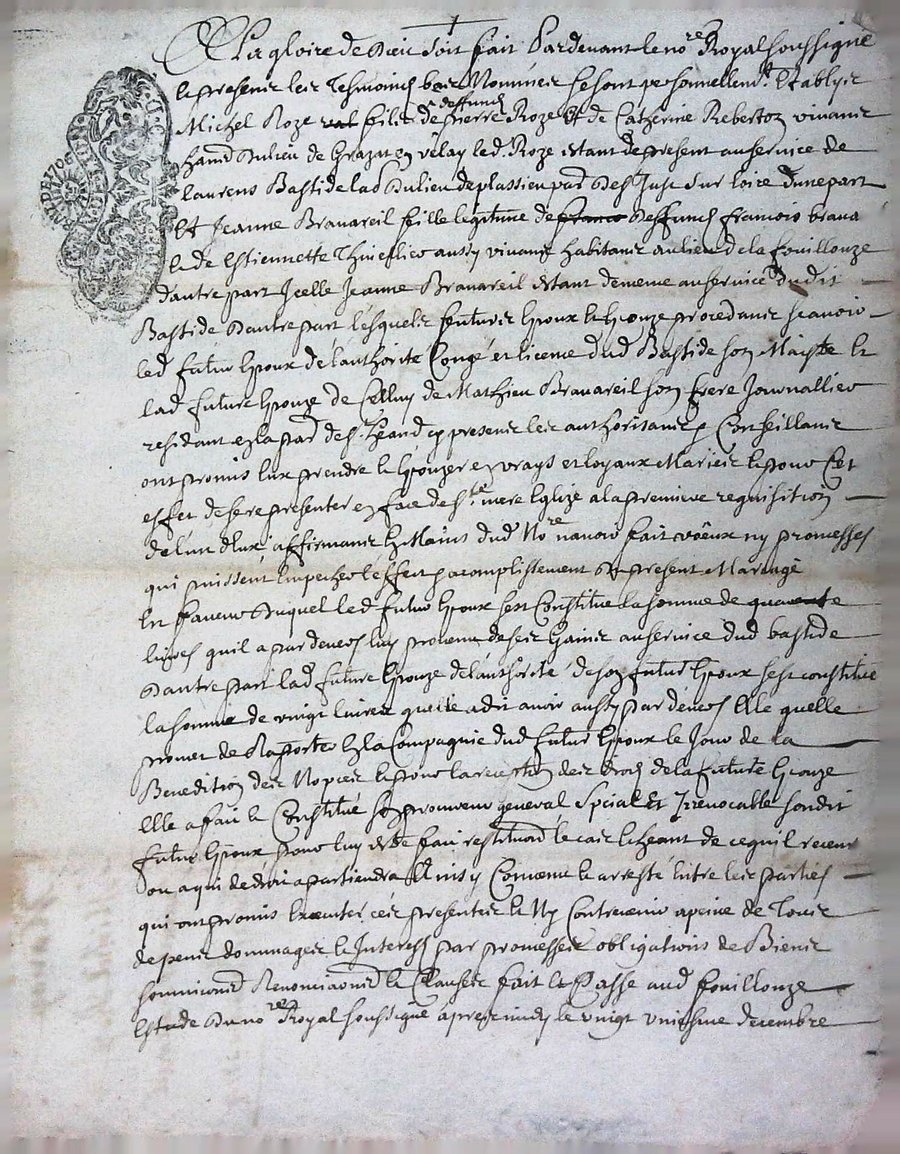 A La gloire de Dieu soit fait Pardevant le no.re Royal soussigné
et presens les Tesmoins bas Nommes se sont personnellem.t Establys
deffunct
Michel Roze fils de Pierre Roze et de Catherine Reberton vivans
du lieu de Grazac en velay led. Roze estant de present au service de
laurens Bastide lab. du lieu de plassieu par. de S.t Just sur loire d'une part
Et Jeanne Bravareil fille legitime de deffunct francois brava
et de Estiennette aussy vivans habitans au lieu de la fouillouze
d'autre part Icelle Jeanne Bravareil estant de meme au service dudit
Bastide d'autre part lesquels futurs Epoux et Epouze procedans scavoir
led. futur Epoux de l'authorité Congé et licence dud. Bastide son Maistre et
lad. future Epouze de Celluy de Mathieu Bravareil son frere Journallier
residant en la par. de S.t heand cy presens les authorisans et Conseillans
ont promis eux prendre et Epouzer en vrays et loyaux Maries et pour Cet
effet de se representer en face de S.te mere Eglize a la premiere requisition
de l'un d'eux affirmans Es Mains dud. No.re n'avoir fait vœux ny promesses
qui puissent Empecher l'effect et acomplissement du present Mariage
En faveur duquel led. futur Epoux s'est Constitué la somme de quarente
livres qu'il a par devers luy provenu de ses Gains au service dud. bastide
d'autre part lad. future Epouze de l'authorité de son futur Epoux s'est constitué
la somme de vingt livres qu'elle a dit avoir aussy par devers Elle quelle
promet de Raporter En la Compagnie dud. futur Epoux le Jour de la
Benediction des Nopces et pour la des droits de la future Epouze
Elle a fait et Constitué son procureur general Special et Irrevocable sondit
futur Epoux pour luy estre fait restitution le cas Echeant de ce qu'il recevra
ou a qui de droit apartiendra Ainsy Convenu et arresté Entre les parties
qui ont promis Executer ces presentes et Ny Contrevenir a peine de Tous
depens dommages et Interests par promesses obligations de Biens
soumissions Renonciations et Clauses fait et Passe aud. fouillouze
Estude du no.re Royal soussigné apres midy le vingt uniesme decembre